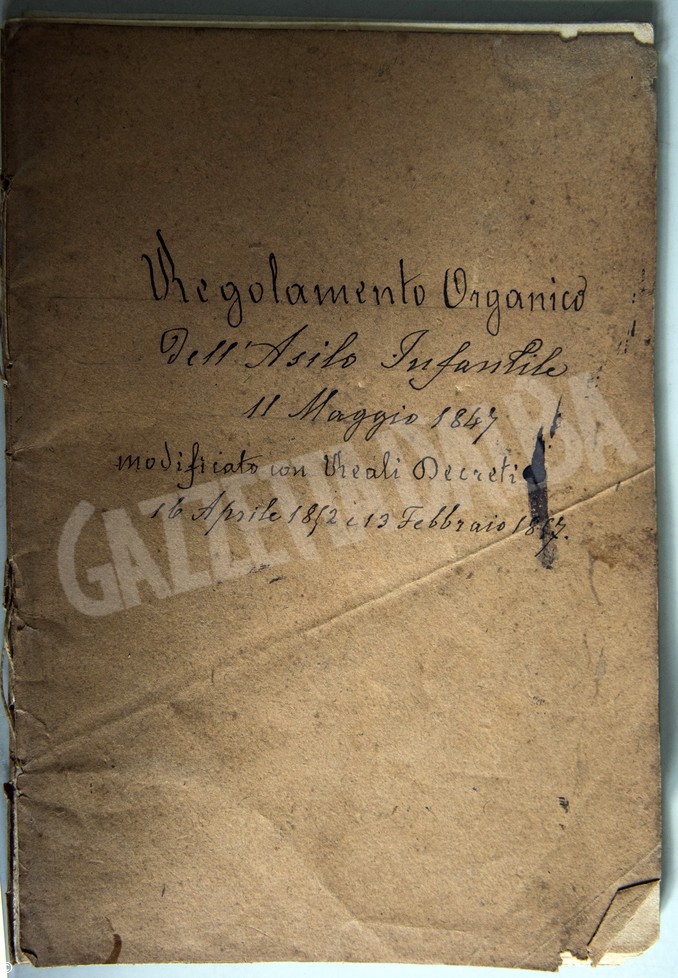 Regolamento Organico
Dell'Asilo Infantile
11 Maggio 1847
modificato con Reali Decreti
16 Aprile 1852 e 13 Febbraio 1857.
GAZZETTA D'ALBA